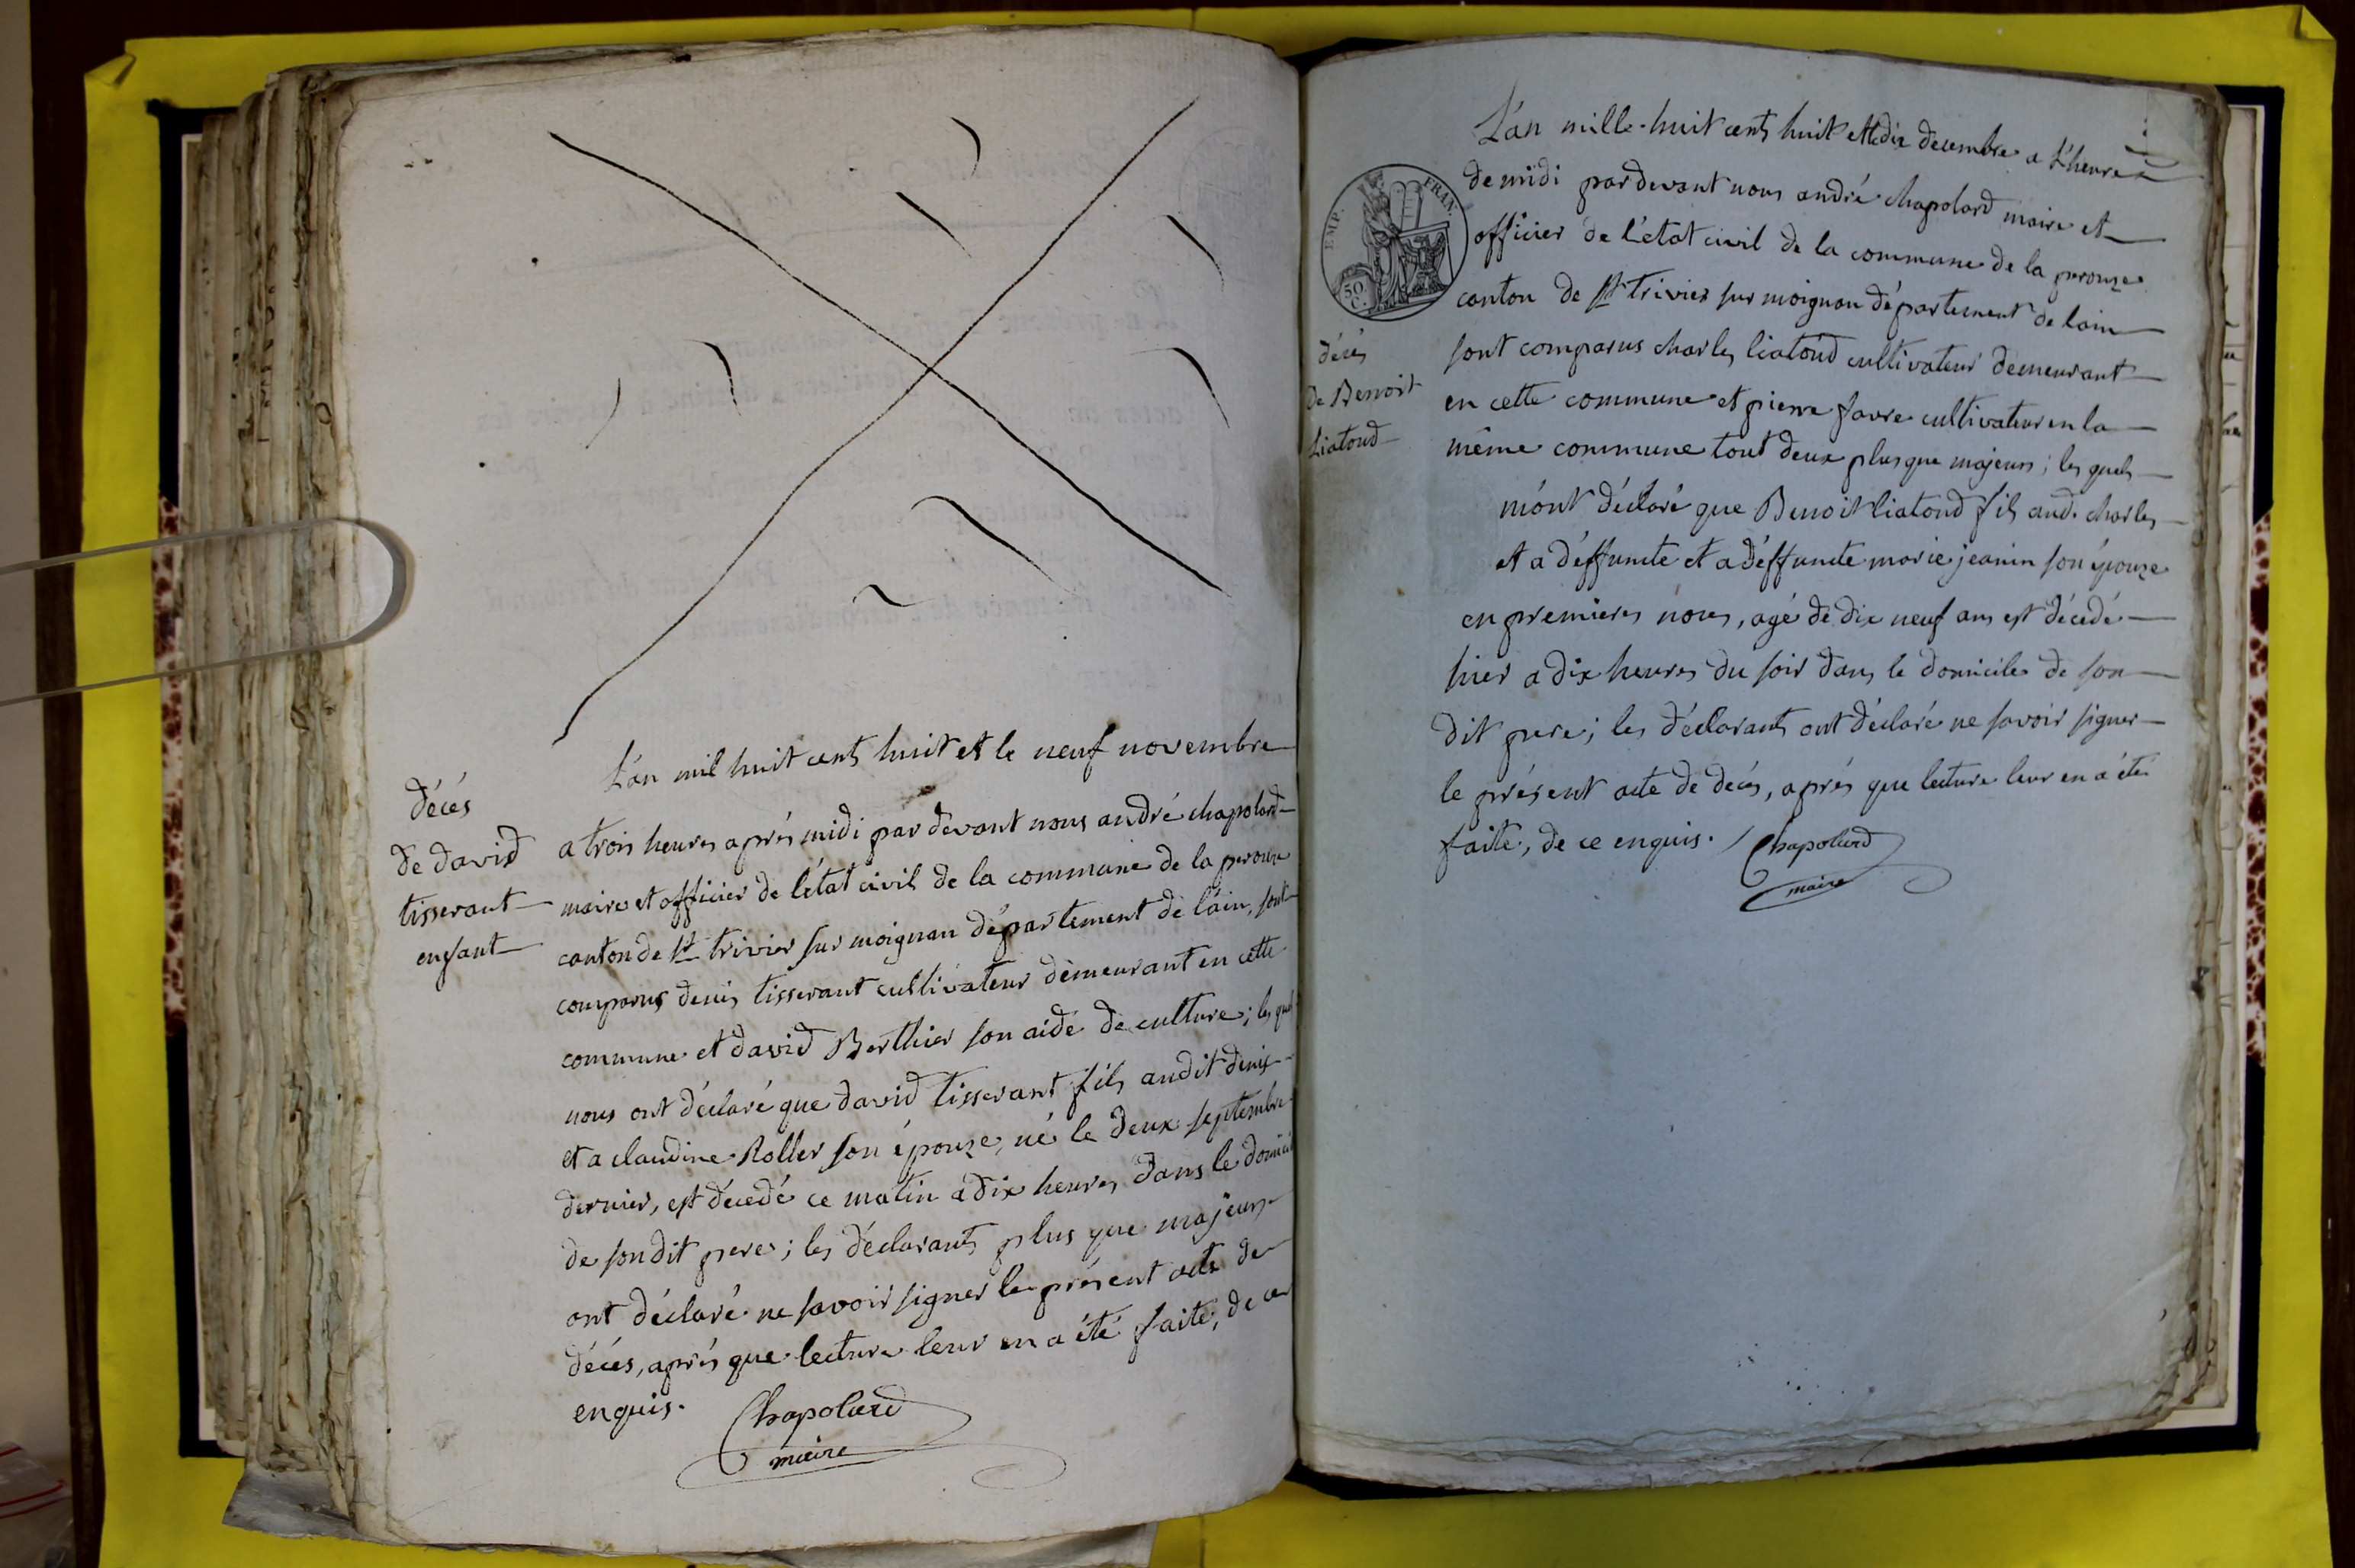 décès
de david
tisserant
enfant
L'an mil huit cents huit et le neuf novembre
a trois heures aprés midi par devant nous andré chapolard
maire et officier de l'état civil de la commune de la perouze
canton de st trivier sur moignan département de l'ain, sont
comparus denis tisserant cultivateur demeurant en cette
commune et david Berthier son aide de culture; les quels
nous ont déclaré que david tisserant fils audit denis
et a claudine Roller son épouze, né le deux septembre
dernier, est décedé ce matin a dix heures dans le domicile
de son dit pere; les déclarants plus que majeurs
ont déclaré ne savoir signer le présent acte de
décés, aprés que lecture leur en a été faite, de ce
enquis.
Chapolard
maire
EMP. FRAN.
50 C.
décés
de Benoit
Liatoud
L'an mille huit cents huit et le dix decembre a l'heure
de midi par devant nous andré chapolard maire et
officier de l'état civil de la commune de la perouze
canton de st trivier sur moignan département de lain
sont comparus charles liatoud cultivateur demeurant
en cette commune et pierre favre cultivateur en la
même commune tout deux plus que majeurs; les quels
m'ont déclaré que Benoit liatoud fils aud. charles
et a déffuncte et a déffuncte marie jeanin son épouze
en premieres noces, agé de dix neuf ans est décedé
hier a dix heures du soir dans le domicile de son
dit pere; les déclarants ont déclaré ne savoir signer
le présent acte de décés, aprés que lecture leur en a été
faite, de ce enquis. Chapolard
maire